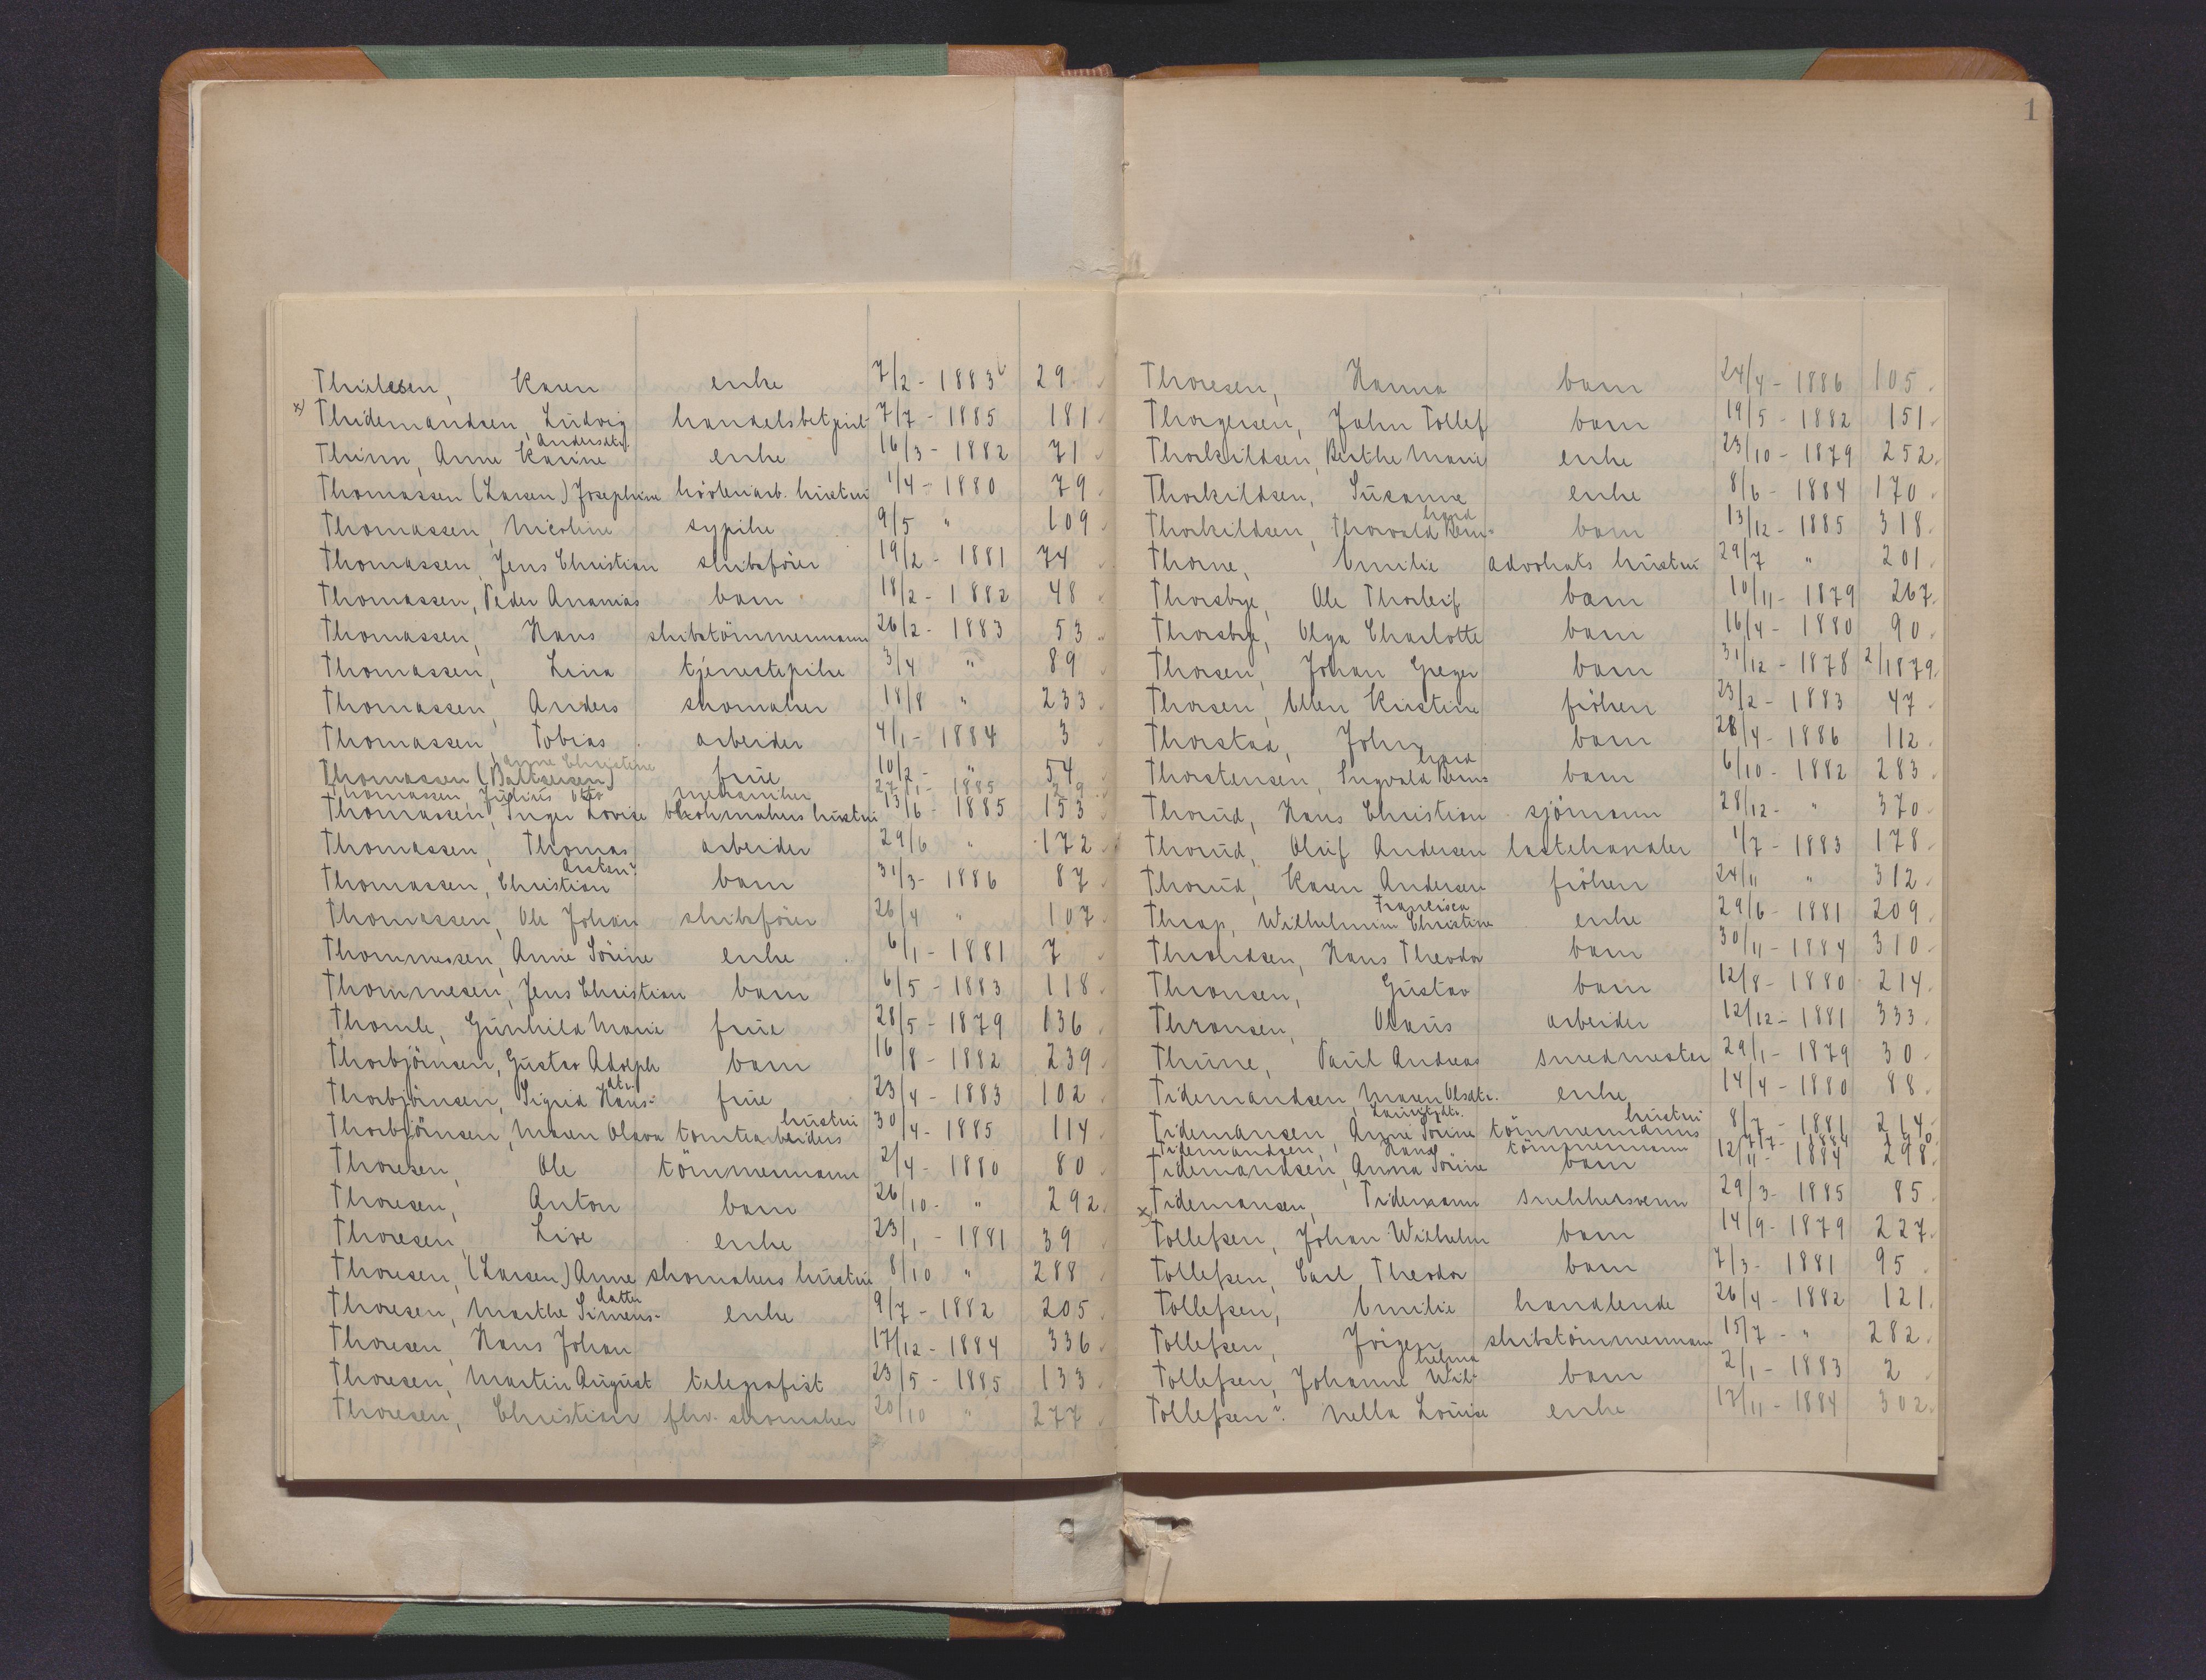 1
Thielesen, Karen enke 7/2 - 1883 29.
x) Thidemandsen, Ludvig handelsbetjent 7/7 - 1885 181
Thinn, Anne Karine Andersdtr. enke 16/3 - 1882 71
Thomassen (Larsen) Josephine hustru 1/4 - 1880 79
Thomassen, Nicoline sypike 9/5 " 109
Thomassen, Jens Christian skibsförer 19/2 - 1881 74
Thomassen, Peder Ananias barn 18/2 - 1882 48
Thomassen, Hans skibstömmermann 26/2 - 1883 53
Thomassen, Lina tjenestepike 3/4 " 89
Thomassen, Anders skomaker 18/8 " 233
Thomassen, Tobias arbeider 4/1 - 1884 3
Thomassen (Baltzersen) Anne Christine frue 10/2 - " 54
Thomassen, Julius Otto mekaniker 27/1 - 1885 29
Thomassen, Inger Lovise blokmakers hustru 13/6 - 1885 153
Thomassen, Thomas arbeider 29/6 " 172
Thomassen, Christian barn 31/3 - 1886 87
Thomassen, Ole Johan skibsförer 26/4 " 107
Thommesen, Anne Sörine enke 6/1 - 1881 7
Thommesen, Jens Christian barn 6/5 - 1883 118
Thomle, Gunhild Marie frue 28/5 - 1879 136
Thorbjörnsen, Gustav Adolph barn 16/8 - 1882 239
Thorbjörnsen, Sigrid Hans-dtr. frue 23/4 - 1883 102
Thorbjörnsen, Maren Olava tomtearbeiders hustru 30/4 - 1885 114
Thoresen, Ole tömmermann 2/4 - 1880 80
Thoresen, Anton barn 26/10 - " 292.
Thoresen, Live enke 23/1 - 1881 39
Thoresen, (Larsen) Anne skomakers hustru 8/10 " 288
Thoresen, Marthe Simens-datter enke 9/7 - 1882 205
Thoresen, Hans Johan 17/12 - 1884 336
Thoresen, Martin August telegrafist 23/5 - 1885 133
Thoresen, Christian fhv. skomaker 20/10 " 277
Thoresen, Hanna barn 24/4 - 1886 105
Thorgersen, John Tollef barn 19/5 - 1882 151
Thorkildsen, Berthe Marie enke 23/10 - 1879 252.
Thorkildsen, Susanne enke 8/6 - 1884 170
Thorkildsen, Thorvald Bern-hard barn 13/12 - 1885 318
Thorne, Emilie advokats hustru 29/7 " 201
Thorsbye, Ole Thorleif barn 10/11 - 1879 267.
Thorsbye, Olga Charlotte barn 16/4 - 1880 90
Thorsen, Johan Greger barn 31/12 - 1878 2/1879.
Thorsen, Ellen Kristine fröken 23/2 - 1883 47
Thorstad, John barn 28/4 - 1886 112
Thorstensen, Ingvald Bern-hard barn 6/10 - 1882 283
Thorud, Hans Christian sjömann 28/12 - " 370
Thorud, Oluf Andersen lastehandler 1/7 - 1883 178
Thorud, Karen Andersen fröken 24/11 " 312
Thrap, Wilhelmine Christine Francisca enke 29/6 - 1881 209
Throndsen, Hans Theodor barn 30/11 - 1884 310
Thronsen, Gustav barn 12/8 - 1880 214
Thronsen, Olaus arbeider 12/12 - 1881 333
Thune, Paul Andreas smedmester 29/1 - 1879 30
Tidemandsen, Maren Olsdtr. enke 14/4 - 1880 88
Tidemansen, Anne Sörine Lauritzdtr. tömmermanns hustru 8/7 - 1881 214
Tidemandsen, Hans tömmermann 7/7 - 1884 190
Tidemandsen, Anna Sörine barn 12/11 - 1884 298
x) Tidemansen, Tidemann snekkersvenn 29/3 - 1885 85
Tollefsen, Johan Wilhelm barn 14/9 - 1879 227.
Tollefsen, Carl Theodor barn 7/3 - 1881 95
Tollefsen, Emilie handlende 26/4 - 1882 121
Tollefsen, Jörgen skibstömmermann 15/7 - " 282
Tollefsen, Johanne Wil-helma barn 2/1 - 1883 2
Tollefsen, Nella Louise enke 17/11 - 1884 302.